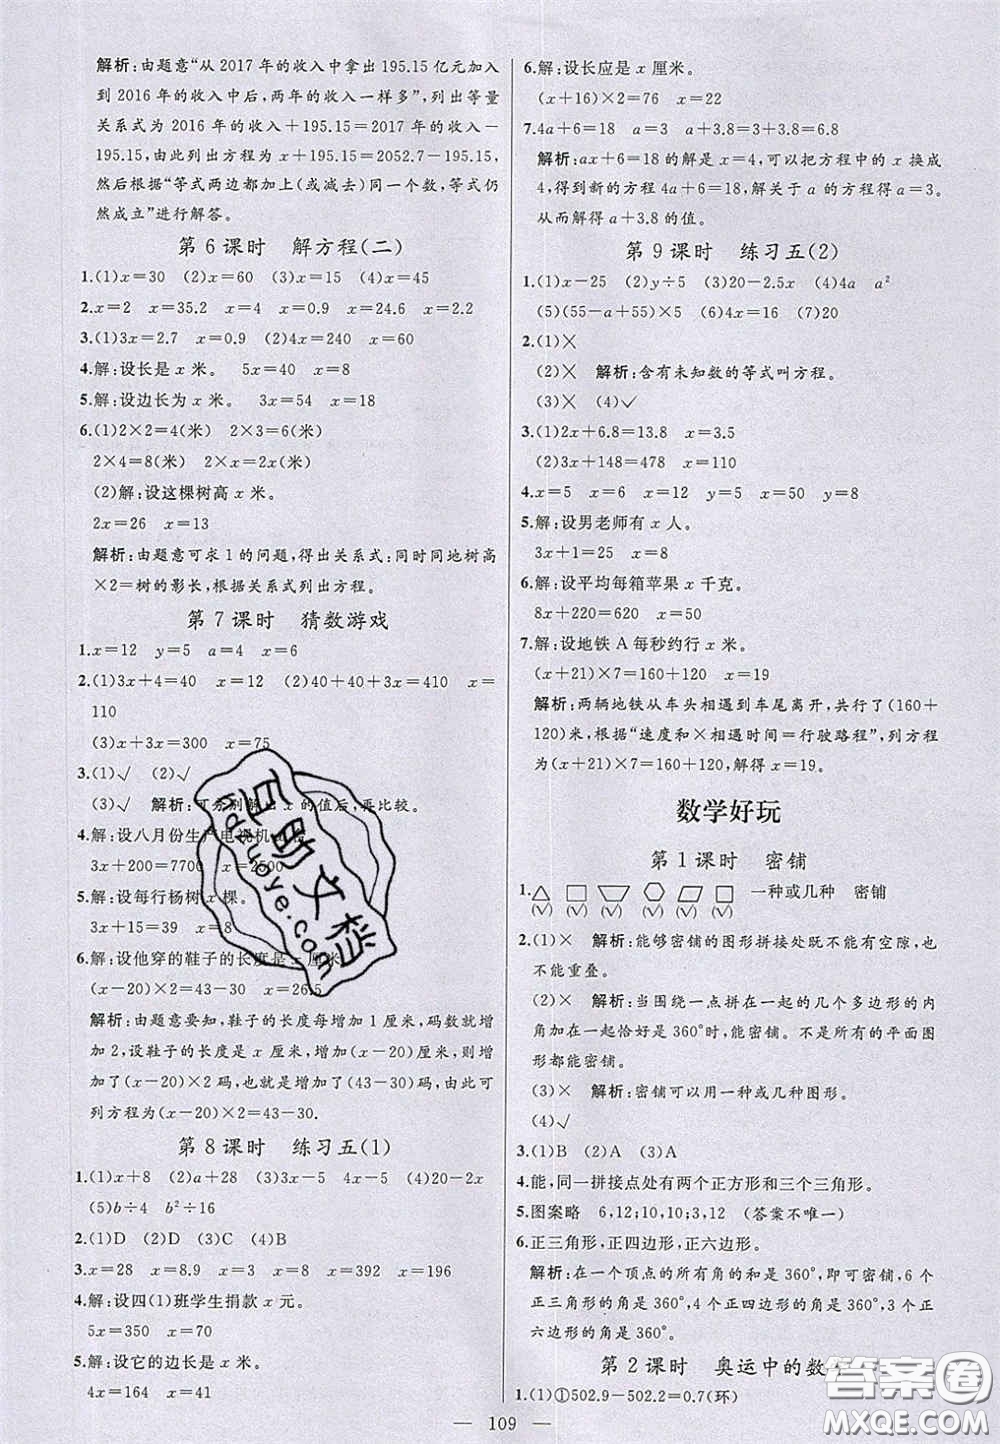 解析:由题意“从2017年的收入中拿出195.15亿元加入
到2016年的收入中后,两年的收入一样多”,列出等量
关系式为2016年的收入+195.15=2017年的收入-
195.15,由此列出方程为x+195.15=2052.7-195.15,
然后根据“等式两边都加上(或减去)同一个数,等式仍
然成立”进行解答。
第6课时 解方程(二)
1.(1)x=30 (2)x=60 (3)x=15 (4)x=45
2.x=2 x=35.2 x=4 x=0.9 x=24.6 x=2.2
3.(1)3x=2.7 x=0.9 (2)4x=240 x=60
4.解:设长是x米。 5x=40 x=8
5.解:设边长为x米。 3x=54 x=18
6.(1)2×2=4(米) 2×3=6(米)
2×4=8(米) 2×x=2x(米)
(2)解:设这棵树高x米。
2x=26 x=13
解析:由题意可求1的问题,得出关系式:同时同地树高
×2=树的影长,根据关系式列出方程。
第7课时 猜数游戏
1.x=12 y=5 a=4 x=6
2.(1)3x+4=40 x=12 (2)40+40+3x=410 x=
110
(3)x+3x=300 x=75
3.(1)√ (2)√
(3)√ 解析:可分别解出x的值后,再比较。
4.解:设八月份生产电视机x台
3x+200=7700 x=2500
5.解:设每行杨树x棵。
3x+15=39 x=8
6.解:设他穿的鞋子的长度是x厘米。
(x-20)×2=43-30 x=26.5
解析:由题意要知,鞋子的长度每增加1厘米,码数就增
加2,设鞋子的长度是x厘米,增加(x-20)厘米,就增
加(x-20)×2码,也就是增加了(43-30)码,由此可
列方程为(x-20)×2=43-30.
第8课时 练习五(1)
1.(1)x+8 (2)a+28 (3)3x-5 4x-5 (4)20-2x
(5)b÷4 b²÷16
2.(1)D (2)D (3)C (4)B
3.x=28 x=8.3 x=8 x=392 x=196
4.解:设四(1)班学生捐款x元。
5x=350 x=70
5.解:设它的边长是x米。
4x=164 x=41
6.解:设长应是x厘米。
(x+16)×2=76 x=22
7.4a+6=18 a=3 a+3.8=3+3.8=6.8
解析:ax+6=18的解是x=4,可以把方程中的x换成
4,得到新的方程4a+6=18,解关于a的方程得a=3。
从而解得a+3.8的值。
第9课时 练习五(2)
1.(1)x-25 (2)y÷5 (3)20-2.5x (4)4a a²
(5)(55-a+55)×5 (6)4x=16 (7)20
2.(1)×
(2)× 解析:含有未知数的等式叫方程。
(3)× (4)√
3.(1)2x+6.8=13.8 x=3.5
(2)3x+148=478 x=110
4.x=5 x=6 y=5 x=50 y=8
5.解:设男老师有x人。
3x+1=25 x=8
6.解:设平均每箱苹果x千克。
8x+220=620 x=50
7.解:设地铁A每秒约行x米。
(x+21)×7=160+120 x=19
解析:两辆地铁从车头相遇到车尾离开,共行了(160+
120)米,根据“速度和×相遇时间=行驶路程”,列方程
为(x+21)×7=160+120,解得x=19。
数学好玩
第1课时 密铺
1. (√) (√) (√) (√) (√) (√) 一种或几种 密铺
2.(1)× 解析:能够密铺的图形拼接处既不能有空隙,也
不能重叠。
(2)× 解析:当围绕一点拼在一起的几个多边形的内
角加在一起恰好是360°时,能密铺。不是所有的平面图
形都能密铺。
(3)× 解析:密铺可以用一种或几种图形。
(4)√
3.(1)B (2)A (3)A
4.能,同一拼接点处有两个正方形和三个三角形。
5.图案略 6,12;10,10;3,12 (答案不唯一)
6.正三角形,正四边形,正六边形。
解析:在一个顶点的所有角的和是360°,即可密铺,6个
正三角形的角是360°,4个正四边形的角是360°,3个正
六边形的角是360°。
第2课时 奥运中的数
1.(1)①502.9-502.2=0.7(环)
109
自助文档
答案圈
MXQE.COM